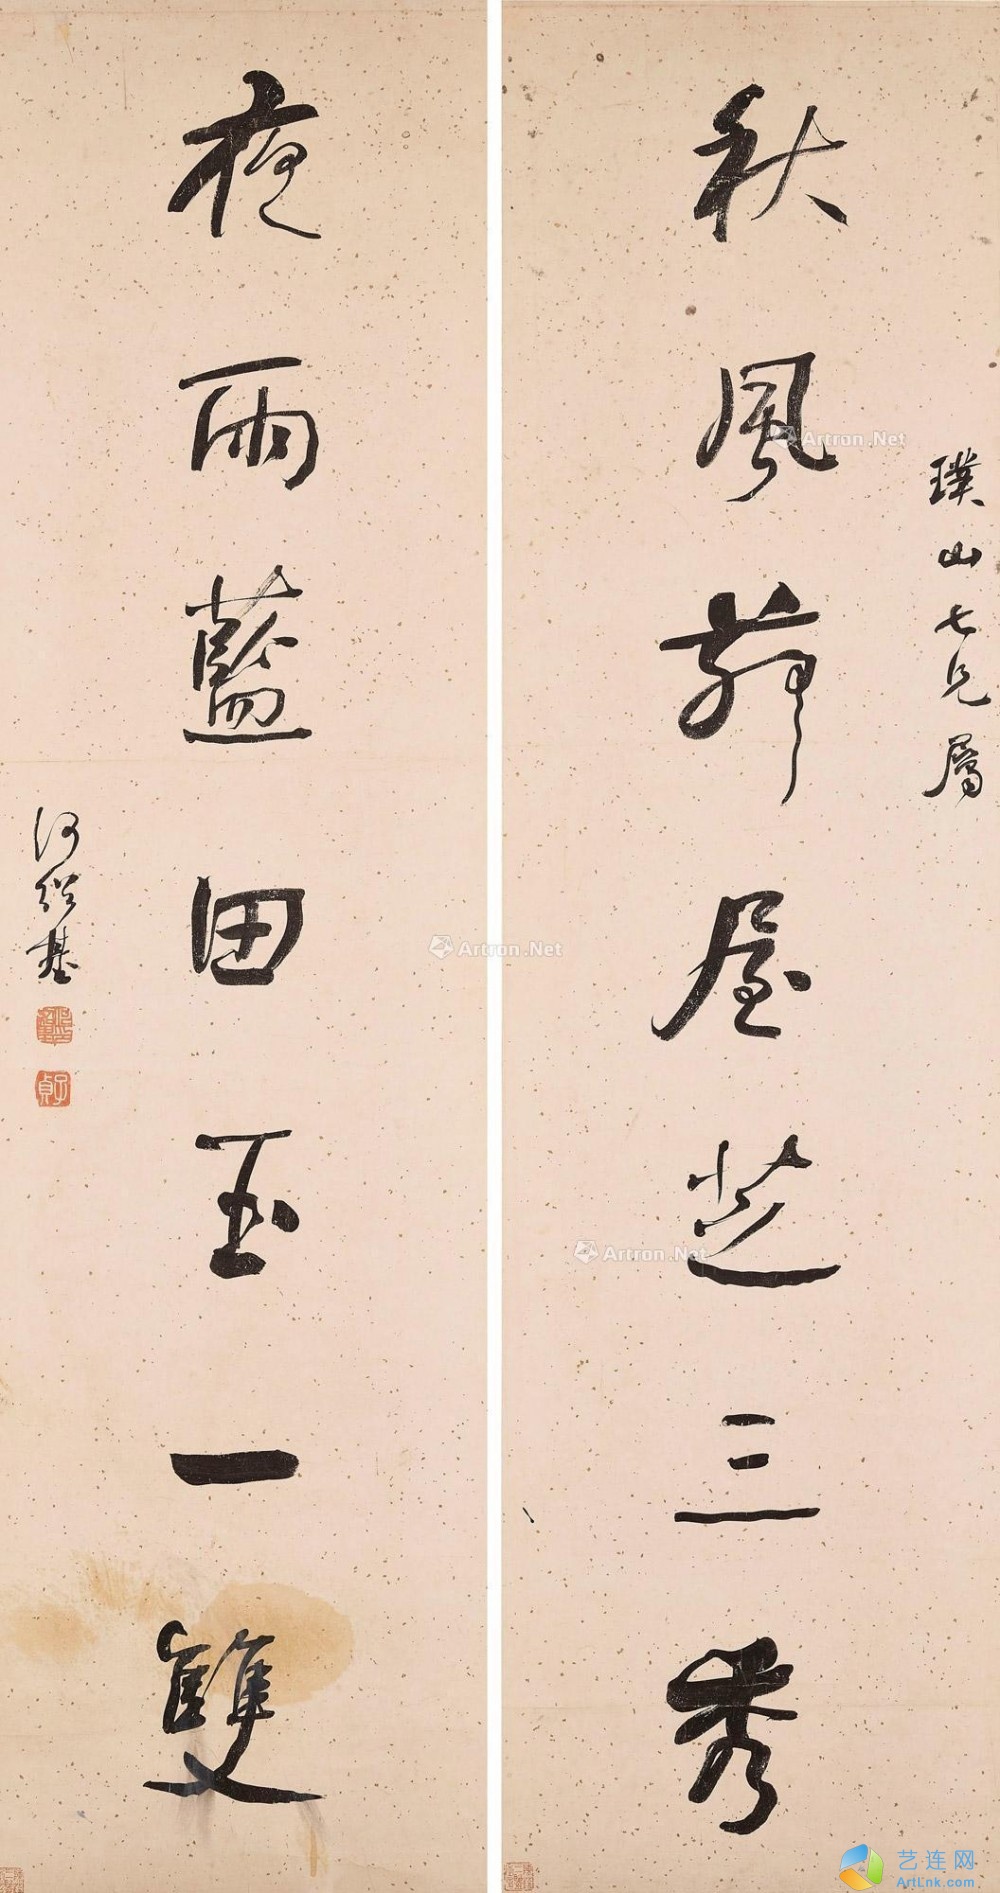 璞山七兄屬
秋風薜屋芝三秀
夜雨藍田玉一雙
何紹基
子貞
Artron.Net
Artron.Net
Artron.Net
艺连网
ArtLnk.com